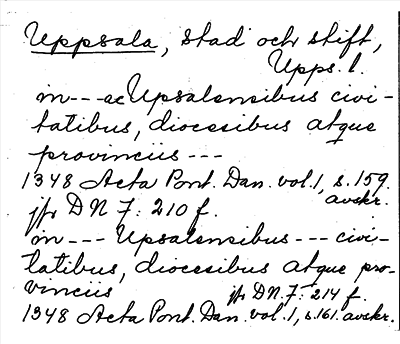 Uppsala, stad och stift,
Upps. l.
in --- ac Upsalensibus civi-
tatibus, diocesibus atque
provinciis ---
1348 Acta Pont. Dan. vol. 1, s. 159.
avskr.
jfr DN 7: 210 f.
in --- Upsalensibus --- civi-
tatibus, diocesibus atque pro-
vinciis jfr DN. 7: 214 f.
1348 Acta Pont. Dan. vol. 1, s. 161. avskr.